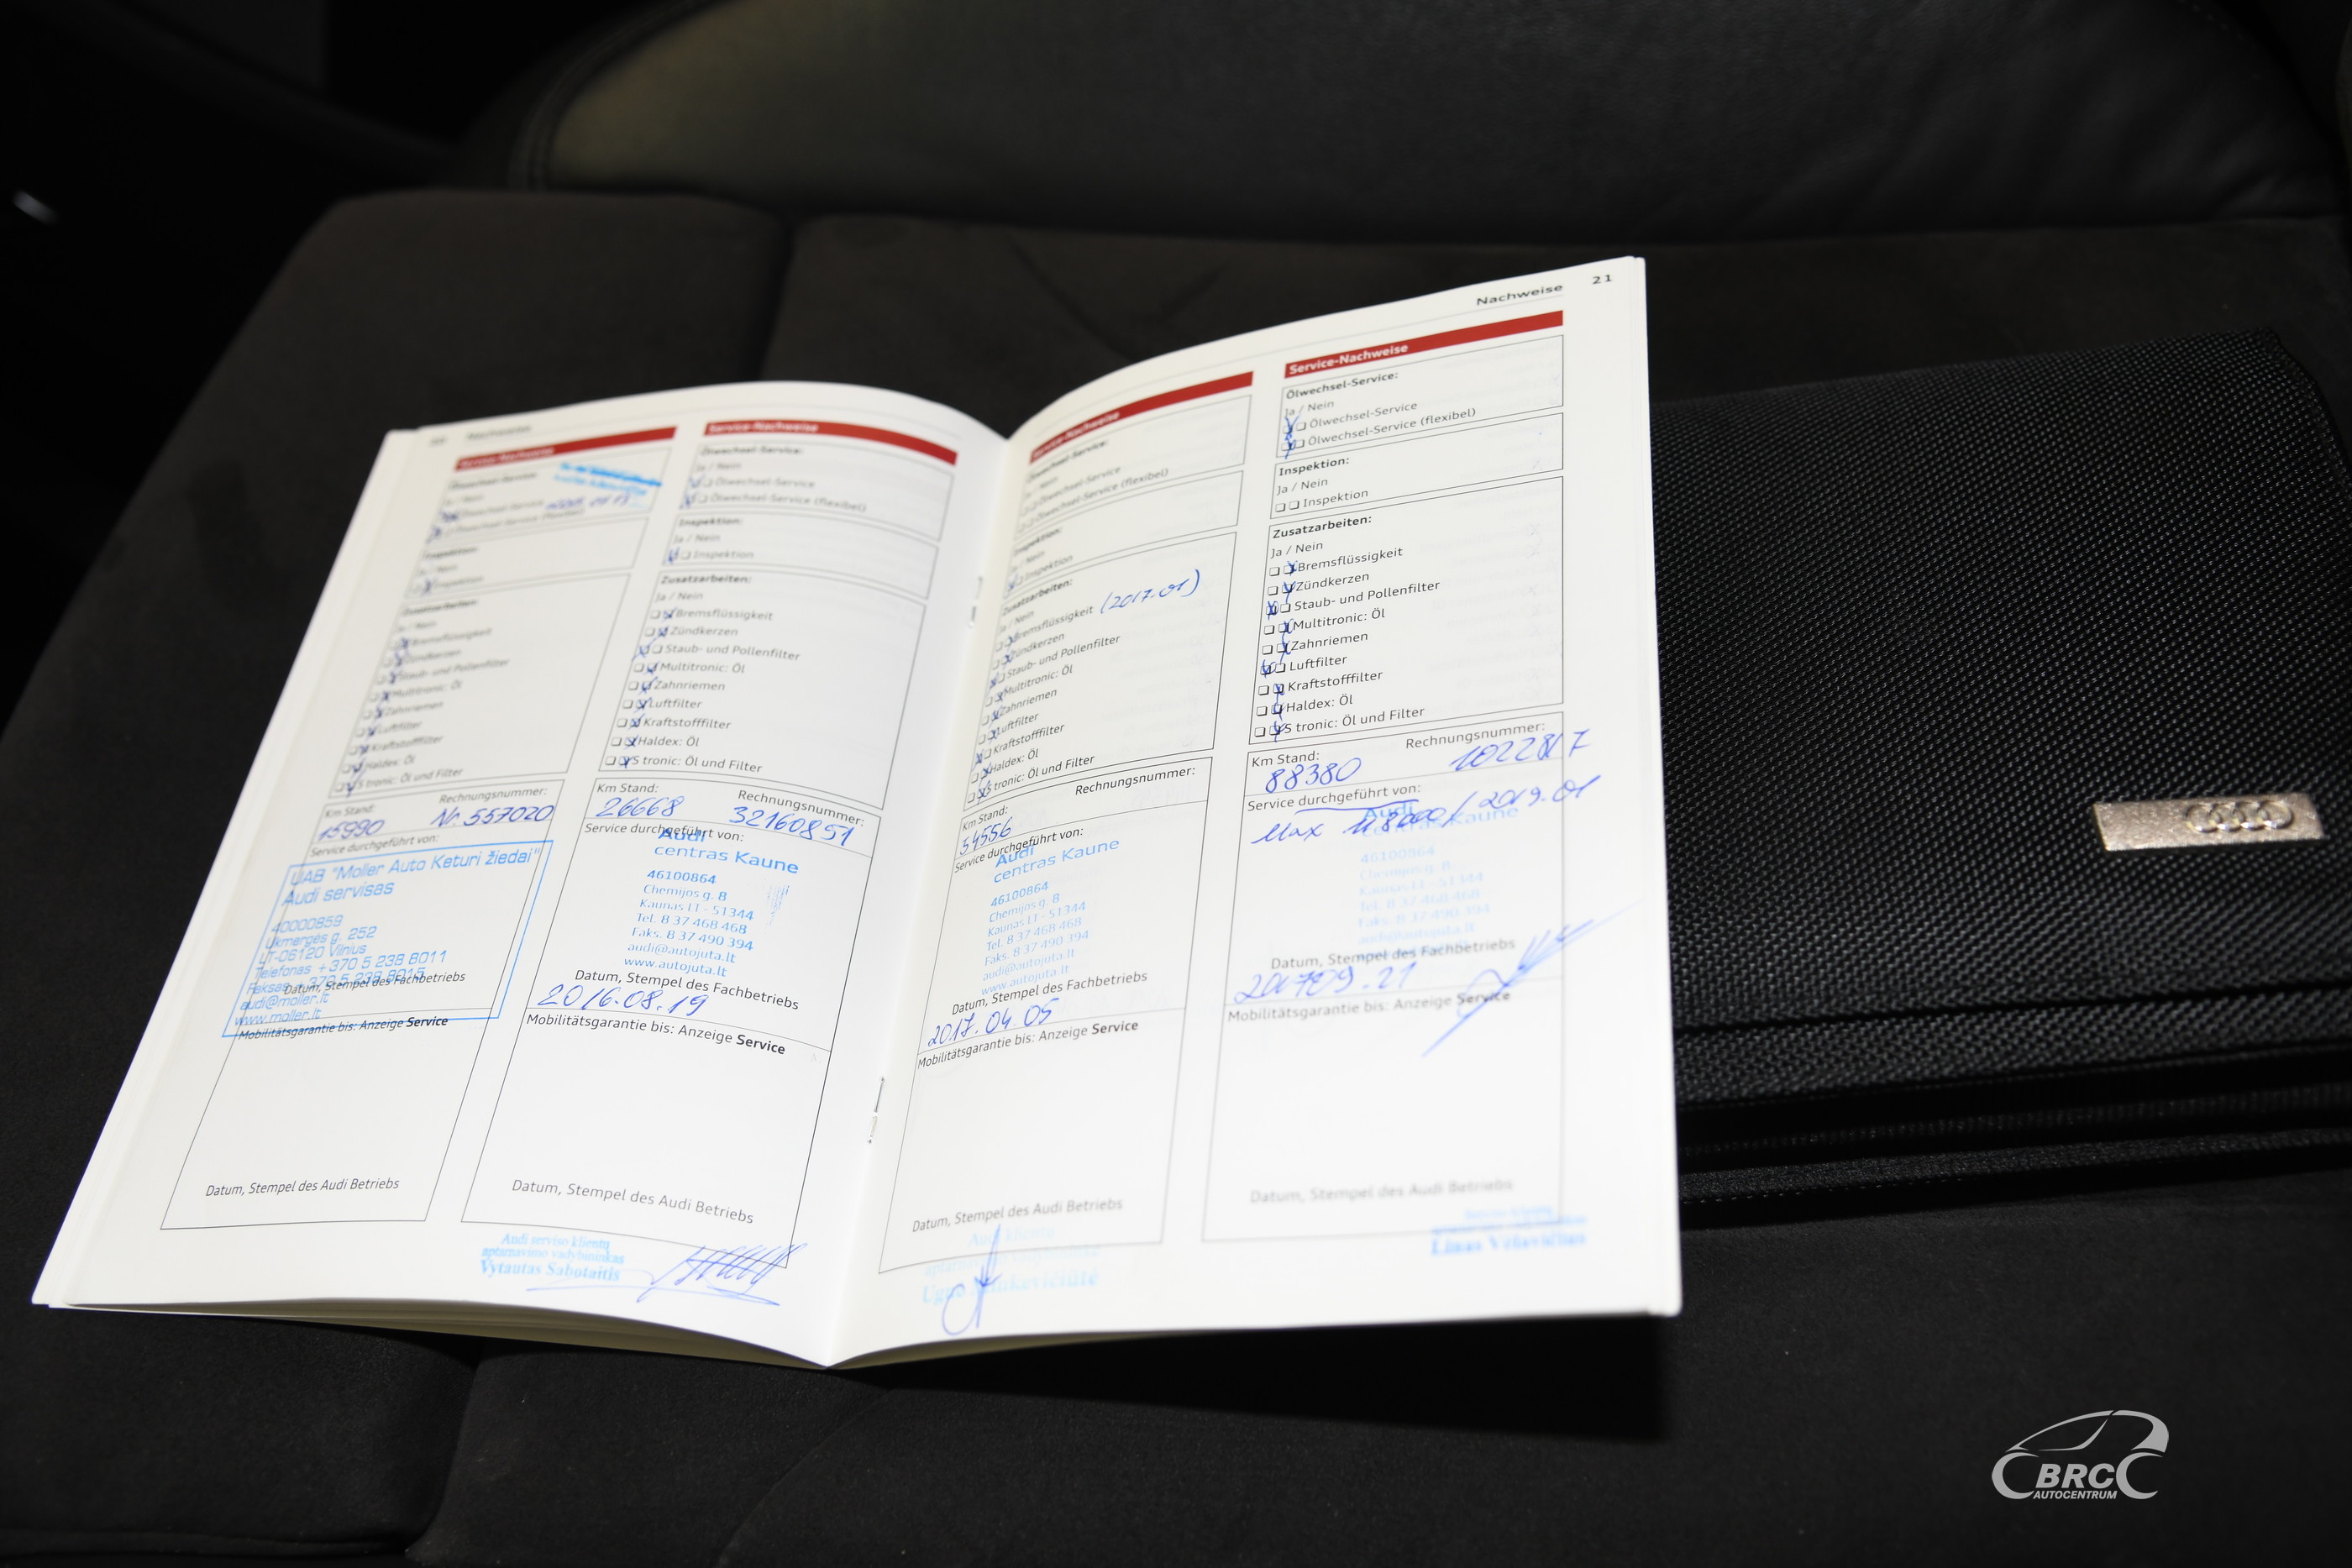 Nachweise
Service-Nachweise
Ölwechsel-Service:
Ja / Nein
Ölwechsel-Service
Ölwechsel-Service (flexibel)
Inspektion:
Ja / Nein
Inspektion
Zusatzarbeiten:
Ja / Nein
Bremsflüssigkeit
Zündkerzen
Staub- und Pollenfilter
Multitronic: Öl
Zahnriemen
Luftfilter
Kraftstofffilter
Haldex: Öl
S tronic: Öl und Filter
Km Stand: Rechnungsnummer:
15990 Nr. 557020
Service durchgeführt von:
UAB "Moller Auto Keturi žiedai"
Audi servisas
40000859
Ukmergės g. 252
LT-06120 Vilnius
Telefonas +370 5 238 8011
Faksas +370 5 238 8015
Datum, Stempel des Fachbetriebs
audi@moller.lt
www.moller.lt
Mobilitätsgarantie bis: Anzeige Service
Datum, Stempel des Audi Betriebs
Service-Nachweise
Ölwechsel-Service:
Ja / Nein
Ölwechsel-Service
Ölwechsel-Service (flexibel)
Inspektion:
Ja / Nein
Inspektion
Zusatzarbeiten:
Ja / Nein
Bremsflüssigkeit
Zündkerzen
Staub- und Pollenfilter
Multitronic: Öl
Zahnriemen
Luftfilter
Kraftstofffilter
Haldex: Öl
S tronic: Öl und Filter
Km Stand: Rechnungsnummer:
26668 32160851
Service durchgeführt von:
Audi
centras Kaune
46100864
Chemijos g. 8
Kaunas LT - 51344
Tel. 8 37 468 468
Faks. 8 37 490 394
audi@autojuta.lt
www.autojuta.lt
Datum, Stempel des Fachbetriebs
2016.08.19
Mobilitätsgarantie bis: Anzeige Service
Datum, Stempel des Audi Betriebs
Audi serviso klientų
aptarnavimo vadybininkas
Vytautas Sabotaitis
Service-Nachweise
Ölwechsel-Service:
Ja / Nein
Ölwechsel-Service
Ölwechsel-Service (flexibel)
Inspektion:
Ja / Nein
Inspektion
Zusatzarbeiten:
Ja / Nein
Bremsflüssigkeit (2017.01)
Zündkerzen
Staub- und Pollenfilter
Multitronic: Öl
Zahnriemen
Luftfilter
Kraftstofffilter
Haldex: Öl
S tronic: Öl und Filter
Km Stand: Rechnungsnummer:
54556
Service durchgeführt von:
Audi
centras Kaune
46100864
Chemijos g. 8
Kaunas LT - 51344
Tel. 8 37 468 468
Faks. 8 37 490 394
audi@autojuta.lt
www.autojuta.lt
Datum, Stempel des Fachbetriebs
2017.04.05
Mobilitätsgarantie bis: Anzeige Service
Datum, Stempel des Audi Betriebs
Nachweise 21
Service-Nachweise
Ölwechsel-Service:
Ja / Nein
Ölwechsel-Service
Ölwechsel-Service (flexibel)
Inspektion:
Ja / Nein
Inspektion
Zusatzarbeiten:
Ja / Nein
Bremsflüssigkeit
Zündkerzen
Staub- und Pollenfilter
Multitronic: Öl
Zahnriemen
Luftfilter
Kraftstofffilter
Haldex: Öl
S tronic: Öl und Filter
Km Stand: Rechnungsnummer:
88380 1022817
Service durchgeführt von:
Max 118000 / 2019.01
Audi
centras Kaune
46100864
Chemijos g. 8
Kaunas LT - 51344
Tel. 8 37 468 468
Faks. 8 37 490 394
audi@autojuta.lt
Datum, Stempel des Fachbetriebs
201709.21
Mobilitätsgarantie bis: Anzeige Service
Datum, Stempel des Audi Betriebs
Linas
BRC
AUTOCENTRUM